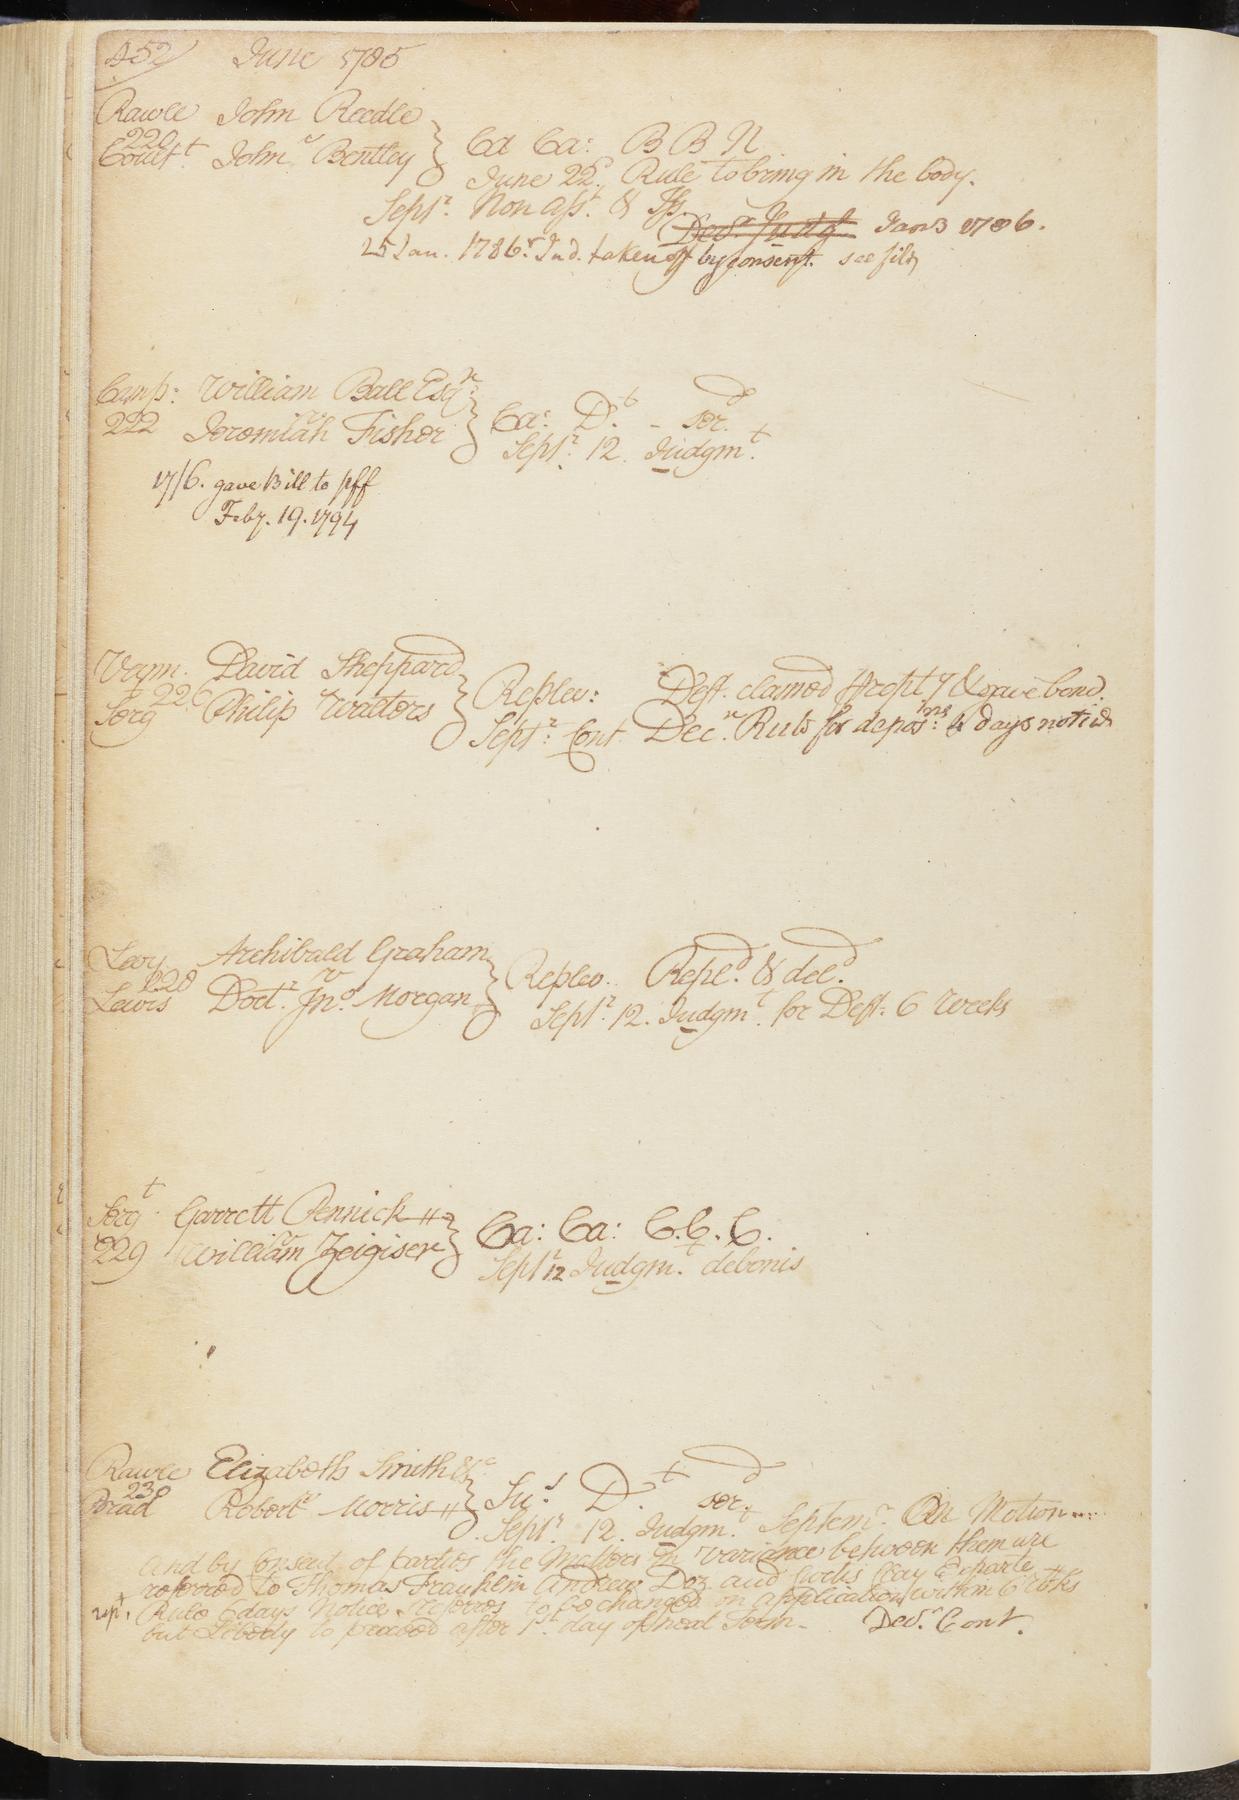 452 June 1785
Rawle John Reedle
220 v
Coult^t John Bentley } Ca Ca: B B N
June 22^d. Rule to bring in the body.
Sept^r. Non Ass^t. & Iss. Dec^r Judg^t Jan 3 1786.
25 Jan. 1786. Jud. taken off by consent. see file
Camp: William Ball Esq^r.
222 v Jeremiah Fisher } Ca: D^t - ser^d.
Sept^r. 12. Judgm^t.
17/6. gave Bill to plff
Feby. 19. 1794
Vann. David Sheppard
226
Serg Philip Walters } Replev: Deft. claimed Propt^y & gave bond.
Sept^r. Cont. Dec^r. Rule for depos^ns: 4 days notice
Levy Archibald Graham
228 v
Lewis Doct^r. Jn^o. Morgan } Replev. Repl^d. & del^d.
Sept^r. 12. Judgm^t. for Deft. 6 Weeks
Serg^t. Garrett Pennick
229 v William Zeigiser } Ca: Ca: C. C. C.
Sept^r 12 Judgm^t. debonis
Rawle Elizabeth Smith &^c
230
Brad Robert Morris } Su^s D^t. ser^d.
Sept^r. 12. Judgm^t. Septem^r. On Motion
and by Consent of parties the Matters in variance between them are
referred to Thomas Franklin Andrew Doz and Curtis Clay Exparte
rep^t. Rule 6 days Notice referres to be changed on application within 6 w^ks
but Liberty to proceed after 1^st. day of next Term. Dec^r. Cont.